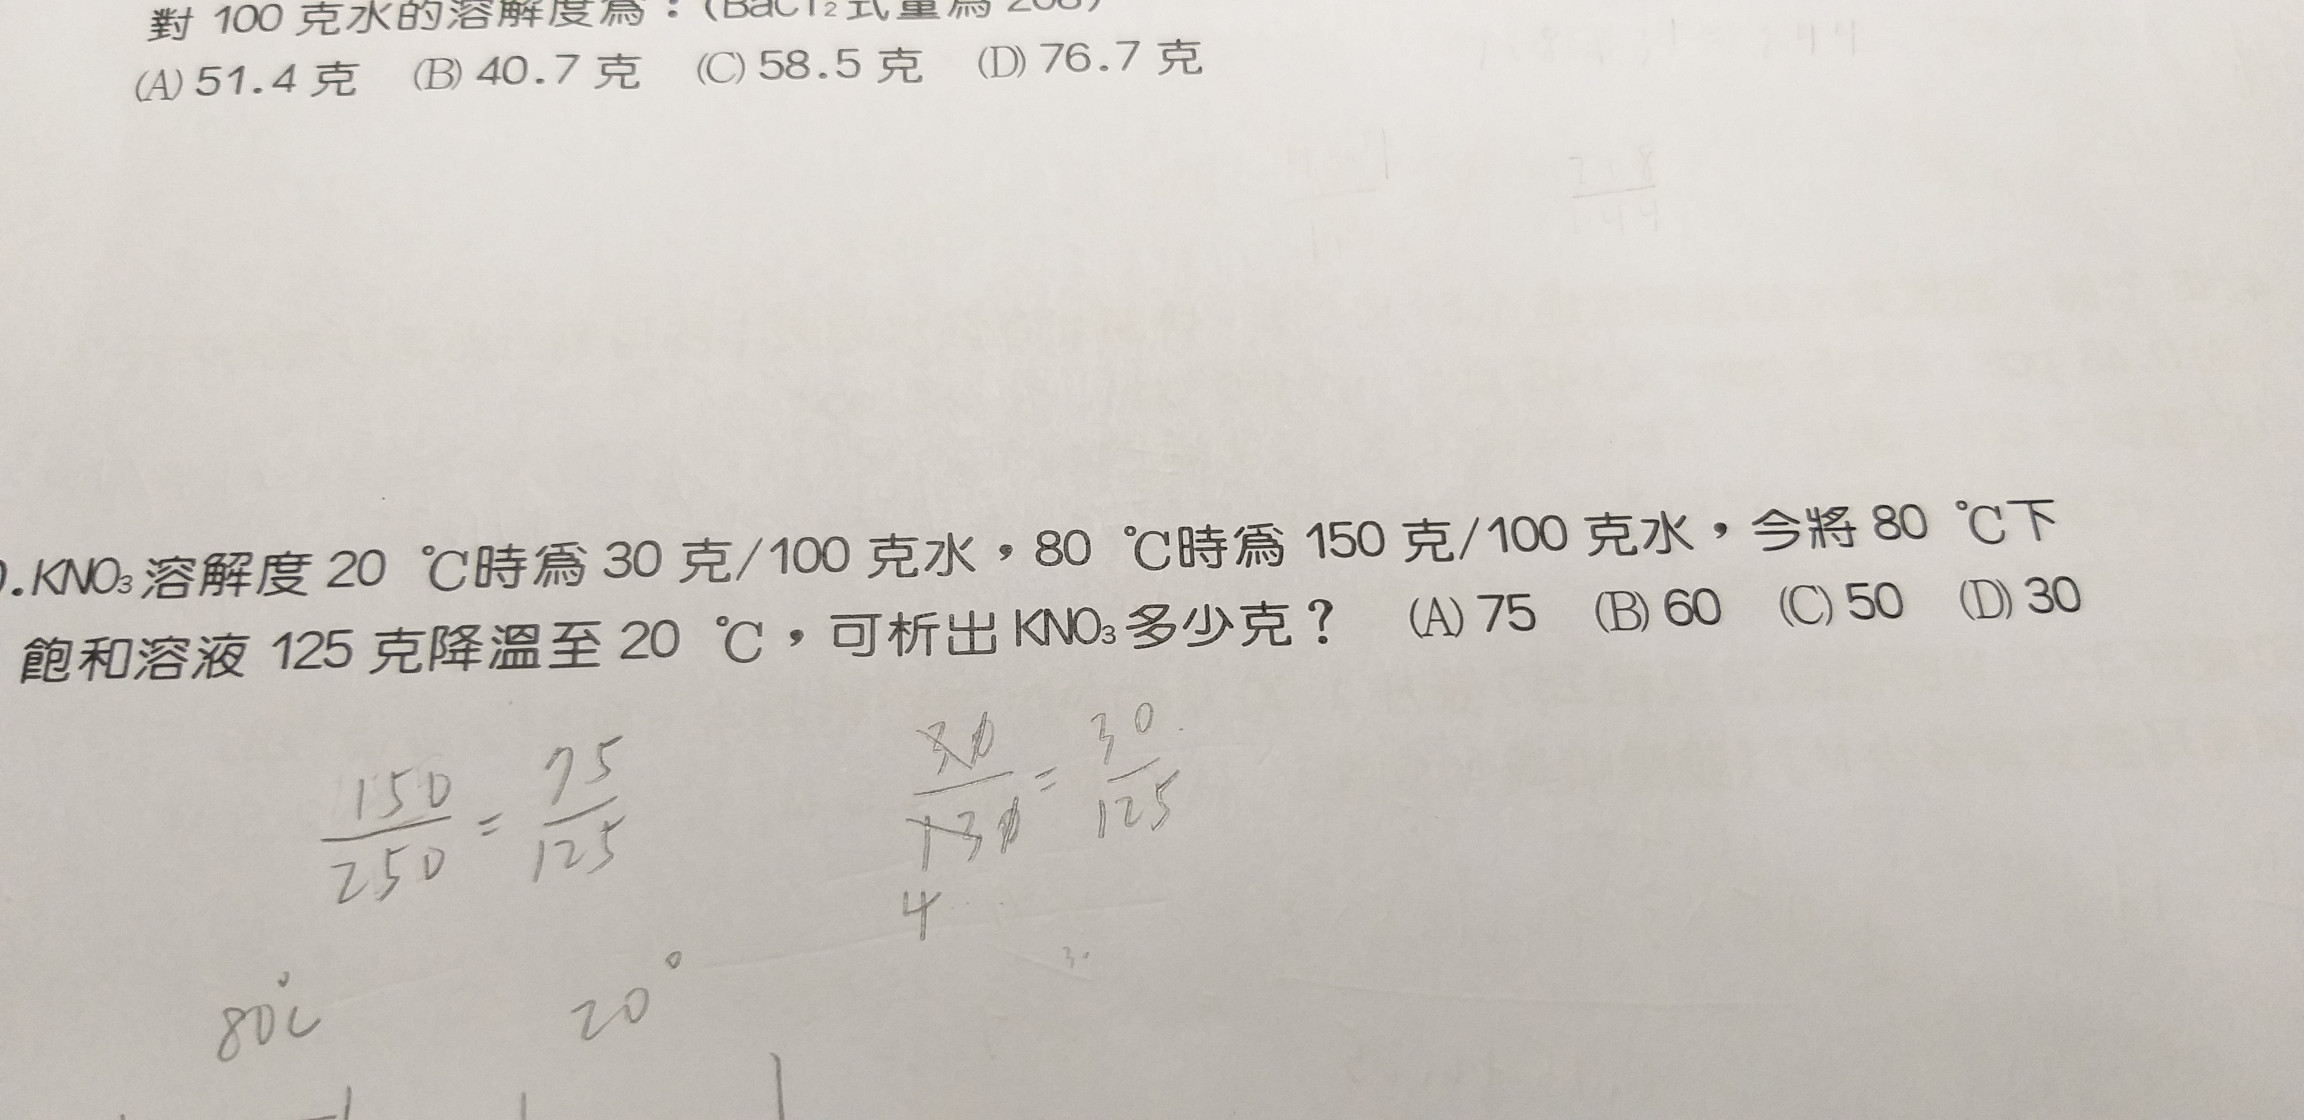 對 100 克水的溶解度為：(BaCl₂式量為 208)
(A) 51.4 克 (B) 40.7 克 (C) 58.5 克 (D) 76.7 克
.KNO₃溶解度 20 ℃時為 30 克/100 克水，80 ℃時為 150 克/100 克水，今將 80 ℃下
飽和溶液 125 克降溫至 20 ℃，可析出 KNO₃多少克？ (A) 75 (B) 60 (C) 50 (D) 30
150/250 = 75/125
30/130 = 30/125
4
80℃ 20°